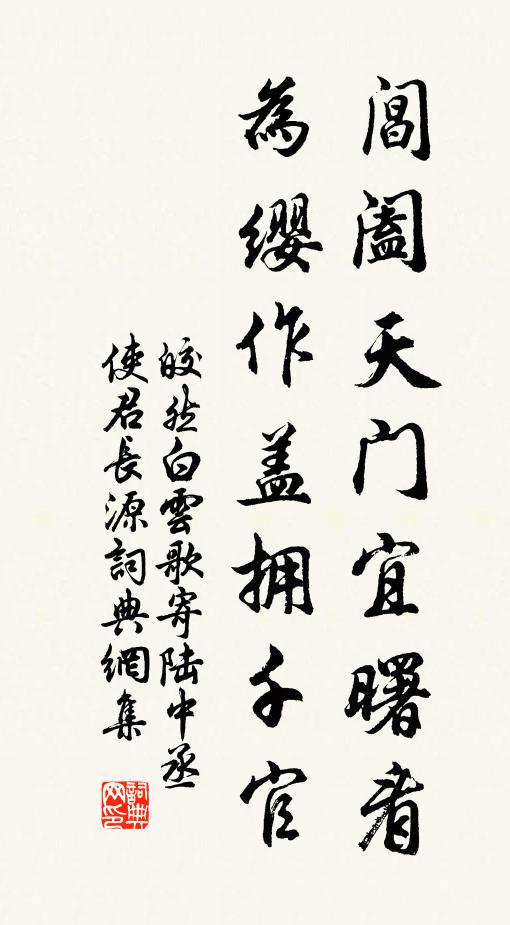 閶阖天门宜曙看
為缨作盖拥千官
皎然白雲歌寄陆中丞
使君長源詞典網集
詞典网印